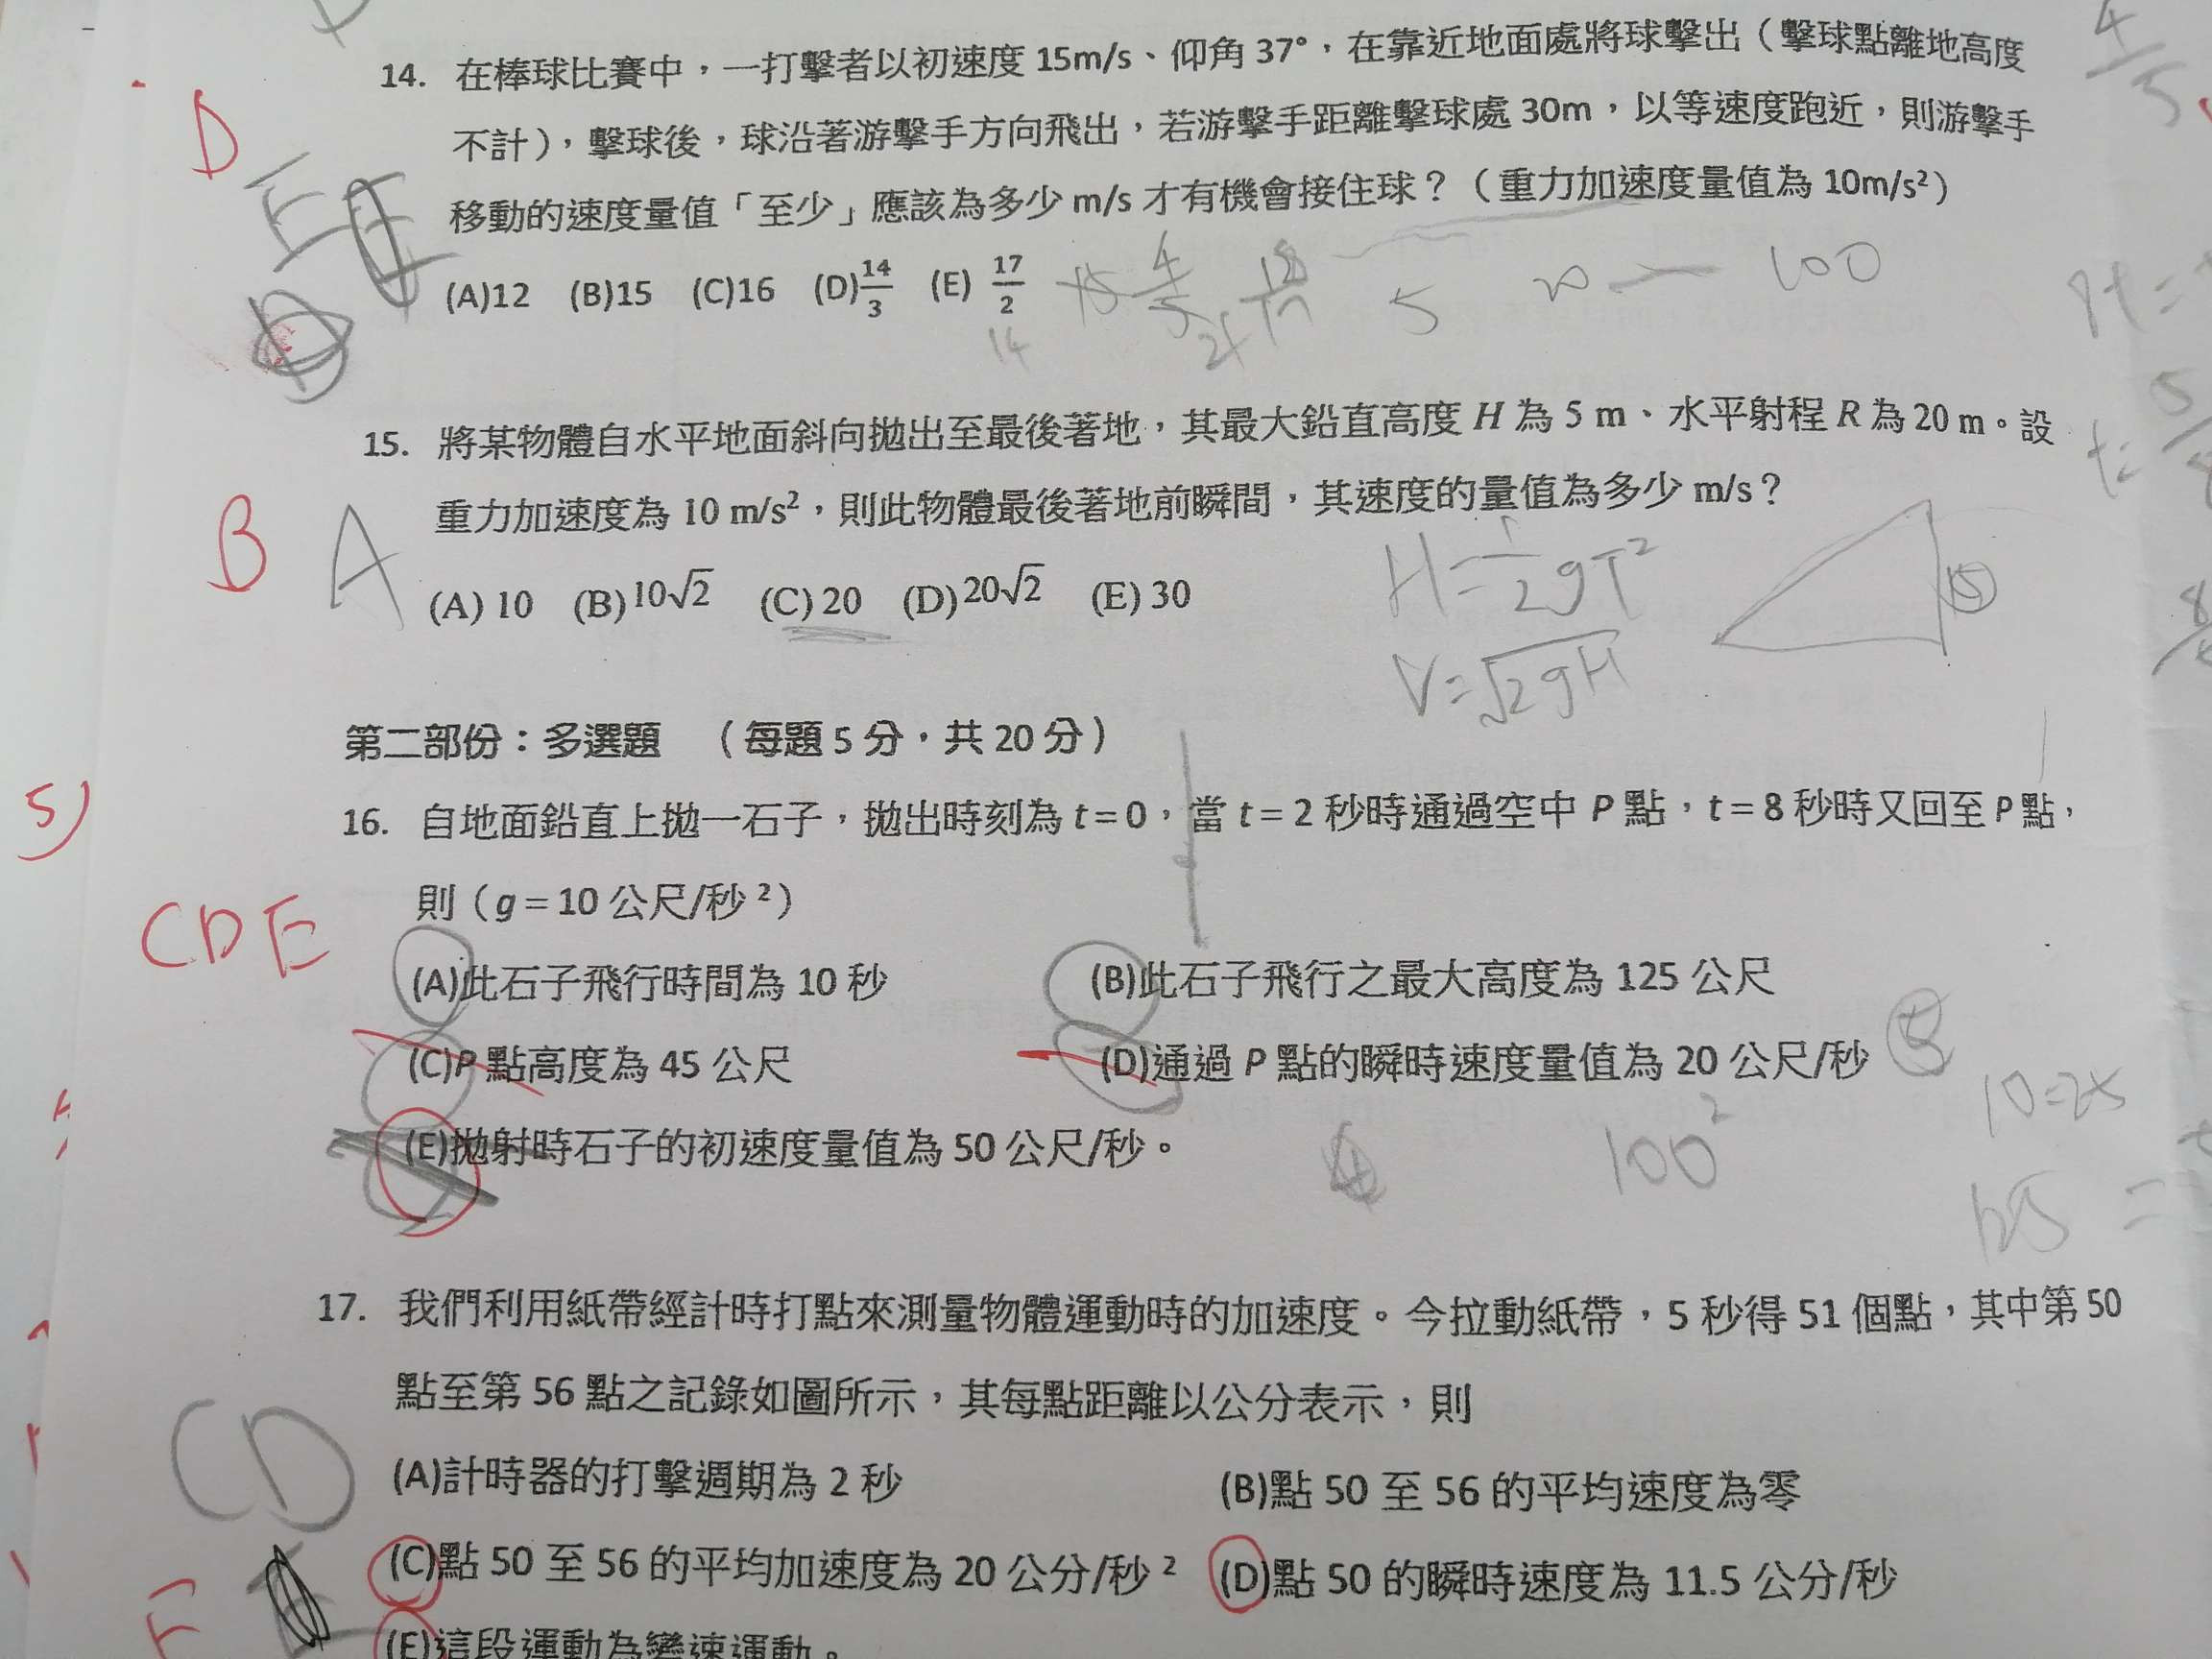 14. 在棒球比賽中，一打擊者以初速度 15m/s、仰角 37°，在靠近地面處將球擊出（擊球點離地高度
不計），擊球後，球沿著游擊手方向飛出，若游擊手距離擊球處 30m，以等速度跑近，則游擊手
移動的速度量值「至少」應該為多少 m/s 才有機會接住球？（重力加速度量值為 10m/s²）
(A)12 (B)15 (C)16 (D)14/3 (E) 17/2
D
14
5
100
4/5
15. 將某物體自水平地面斜向拋出至最後著地，其最大鉛直高度 H 為 5 m、水平射程 R 為 20 m。設
重力加速度為 10 m/s²，則此物體最後著地前瞬間，其速度的量值為多少 m/s？
(A) 10 (B) 10√2 (C) 20 (D) 20√2 (E) 30
B A
H=1/2gT²
V=√2gH
第二部份：多選題 （每題 5 分，共 20 分）
16. 自地面鉛直上拋一石子，拋出時刻為 t = 0，當 t = 2 秒時通過空中 P 點，t = 8 秒時又回至 P 點，
則（g = 10 公尺/秒²）
5)
CDE
(A)此石子飛行時間為 10 秒 (B)此石子飛行之最大高度為 125 公尺
(C)P 點高度為 45 公尺 (D)通過 P 點的瞬時速度量值為 20 公尺/秒
(E)拋射時石子的初速度量值為 50 公尺/秒。
100²
17. 我們利用紙帶經計時打點來測量物體運動時的加速度。今拉動紙帶，5 秒得 51 個點，其中第 50
點至第 56 點之記錄如圖所示，其每點距離以公分表示，則
CD
(A)計時器的打擊週期為 2 秒 (B)點 50 至 56 的平均速度為零
(C)點 50 至 56 的平均加速度為 20 公分/秒² (D)點 50 的瞬時速度為 11.5 公分/秒
E
(E)這段運動為變速運動。